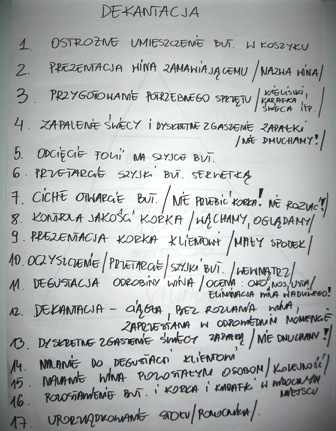 DEKANTACJA
1. OSTROŻNE UMIESZCZENIE BUT. W KOSZYKU
2. PREZENTACJA WINA ZAMAWIAJĄCEMU /NAZWA WINA/
3. PRZYGOTOWANIE POTRZEBNEGO SPRZĘTU /KIELISZKI, KARAFKA ŚWIECA ITP./
4. ZAPALENIE ŚWIECY I DYSKRETNE ZGASZENIE ZAPAŁKI
/NIE DMUCHAMY!/
5. ODCIĘCIE FOLII NA SZYJCE BUT.
6. PRZETARCIE SZYJKI BUT. SERWETKĄ
7. CICHE OTWARCIE BUT. /NIE PRZEBIĆ KORKA! NIE ROZLAĆ!/
8. KONTROLA JAKOŚCI KORKA /WĄCHAMY, OGLĄDAMY/
9. PREZENTACJA KORKA KLIENTOWI /MAŁY SPODEK/
10. OCZYSZCZENIE /PRZETARCIE/ SZYJKI BUT. /WEWNĄTRZ/
11. DEGUSTACJA ODROBINY WINA /OCENA: OKO, NOS, USTA/
ELIMINACJA WINA WADLIWEGO!
12. DEKANTACJA - CIĄGŁA, BEZ ROZLANIA WINA,
ZAPRZESTANA W ODPOWIEDNIM MOMENCIE
13. DYSKRETNE ZGASZENIE ŚWIECY /NIE DMUCHAMY!/
14. NALANIE DO DEGUSTACJI KLIENTOWI
15. NALANIE WINA POZOSTAŁYM OSOBOM /KOLEJNOŚĆ/
16. POZOSTAWIENIE BUT. I KORKA I KARAFKI W WIDOCZNYM
MIEJSCU
17. UPORZĄDKOWANIE STOŁU /POMOCNIKA/.